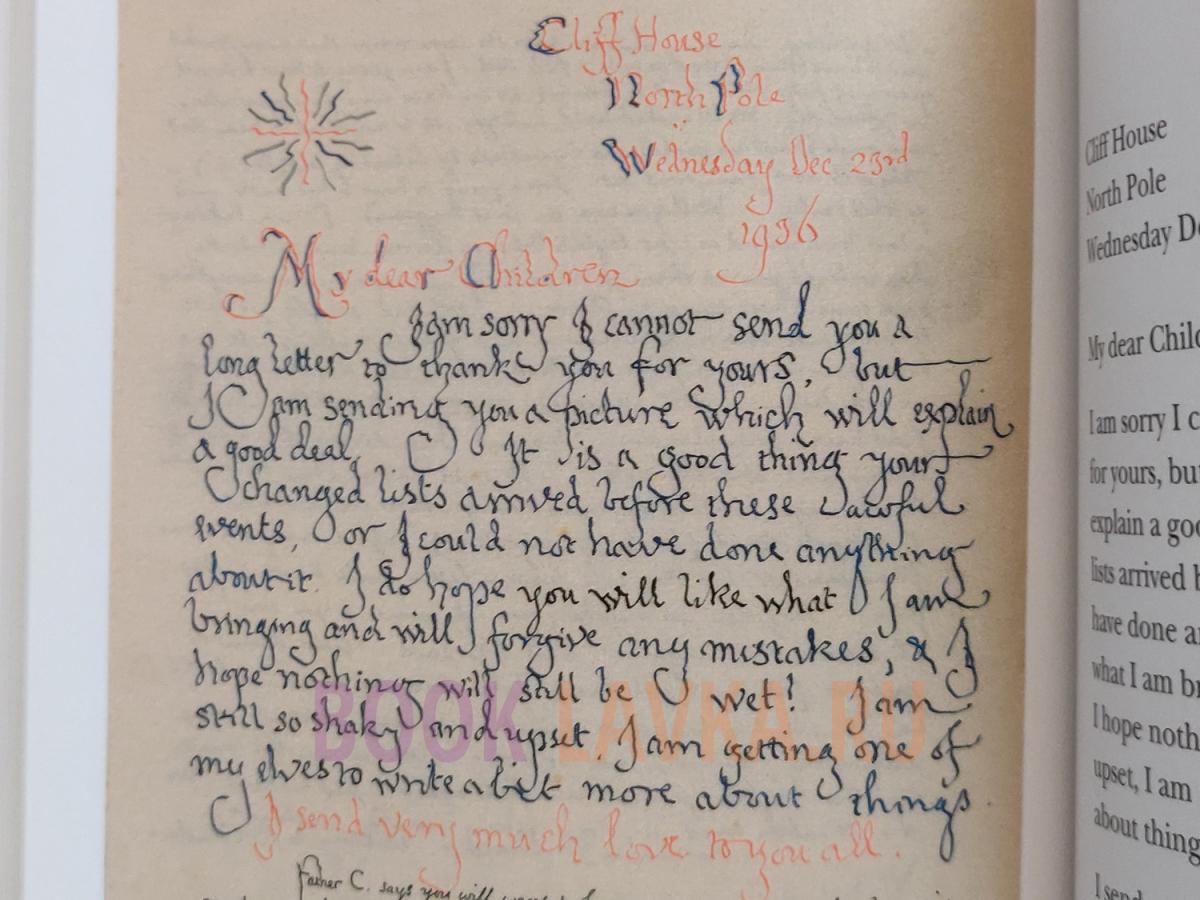 Cliff House
North Pole
Wednesday Dec. 23rd
1936
My dear Children
I am sorry I cannot send you a
long letter to thank you for yours, but
I am sending you a picture which will explain
a good deal. It is a good thing your
changed lists arrived before these awful
events, or I could not have done anything
about it. I do hope you will like what I am
bringing and will forgive any mistakes, & I
hope nothing will still be wet! I am
still so shaky and upset, I am getting one of
my elves to write a bit more about things.
I send very much love to you all.
Father C. says you will want
BOOK LAVKA.RU
Cliff House
North Pole
Wednesday D
My dear Chil
I am sorry I c
for yours, but
explain a goo
lists arrived b
have done a
what I am br
I hope noth
upset, I am
about thing
I send